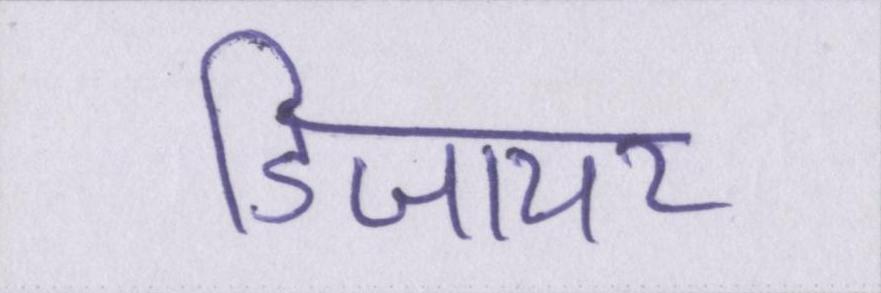 डिजायर